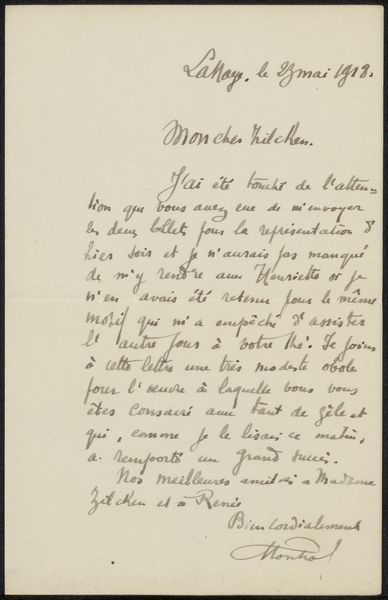 La Haye, le 23 mai 1918.
Mon cher Zilcken.
J'ai été touché de l'atten-
tion que vous avez eue de m'envoyer
les deux billets pour la représentation d'
hier soir et je n'aurais pas manqué
de m'y rendre avec Henriette si je
n'en avais été retenu pour le même
motif qui m'a empêché d'assister
l'autre jour à votre thé. Je joins
à cette lettre une très modeste obole
pour l'œuvre à laquelle vous vous
êtes consacré avec tant de zèle et
qui, comme je le lisais ce matin,
a remporté un grand succès.
Nos meilleures amitiés à Madame
Zilcken et à Renée
Bien cordialement